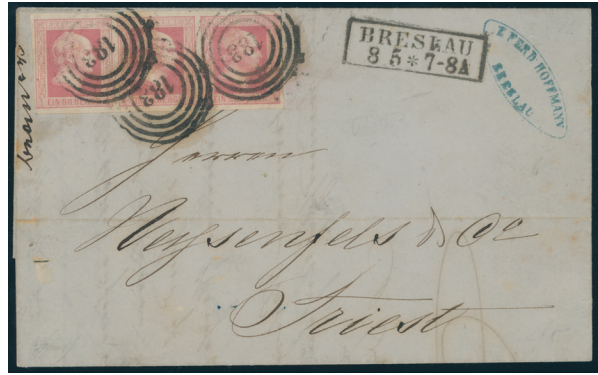 182
182
182
BRESLAU
8 5 * 7-8A
FERD HOFFMANN
BRESLAU
Herren
Weyssenfels & Co
Triest